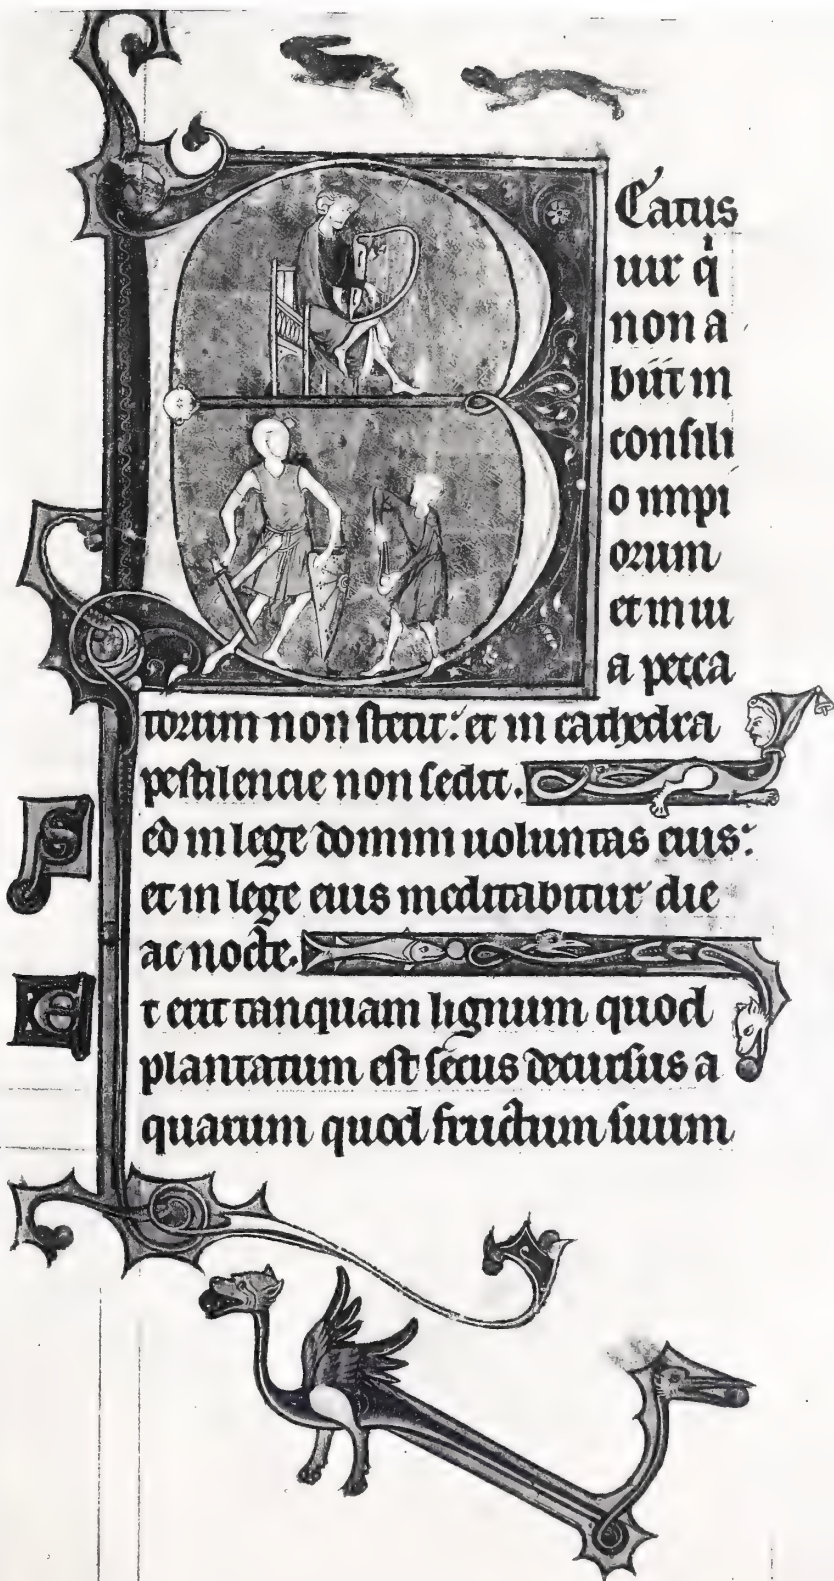 B Eatus
uir q̇
non a
biit in
consili
o impi
orum
et in ui
a pecca
torum non stetit: et in cathedra
pestilencie non sedit.
S ed in lege domini uoluntas eius:
et in lege eius meditabitur die
ac nocte.
E t erit tanquam lignum quod
plantatum est secus decursus a
quarum quod fructum suum